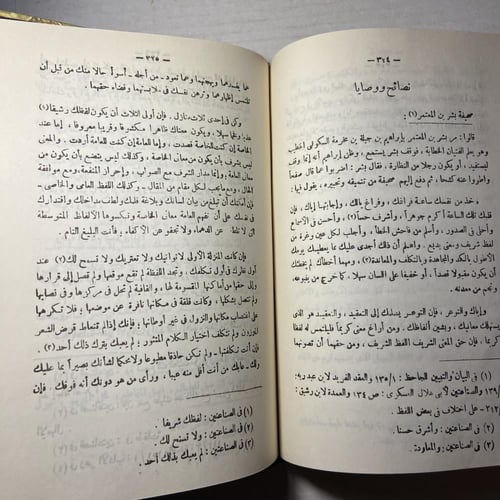 — ٣٢٤ —
نصائح ووصايا
صحيفة بشر بن المعتمر (١) :
قالوا : مر بشر بن المعتمر بإبراهيم بن جبلة بن مخرمة السكوني الخطيب
وهو يعلم الفتيان الخطابة ، فوقف بشر يستمع ، وظن إبراهيم أنه إنما وقف
ليستفيد ، أو يكون رجلا من النظارة ، فقال بشر : اضربوا عما قال صفحا
واطووا عنه كشحا ، ثم دفع إليهم صحيفة من تنميقه وتحبيره ، يقول فيها :
خذ من نفسك ساعة فراغك ، وفراغ بالك ، وإجابتها إياك ، فإن
قلبك تلك الساعة أكرم جوهرا ، وأشرف حسا (٢) ، وأحسن في الأسماع
وأحلى في الصدور ، وأسلم من فاحش الخطأ ، وأجلب لكل عين وغرة من
لفظ شريف ومعنى بديع . واعلم أن ذلك أجدى عليك مما يعطيك يومك
الأطول بالكد والمجاهدة والتكلف والمعاودة (٣) ، ومهما أخطأك لم يخطئك
أن يكون مقبولا قصدا ، أو خفيفا على اللسان سهلا ، كما خرج من ينبوعه،
ونجم من معدنه .
وإياك والتوعر ، فإن التوعر يسلمك إلى التعقيد ، والتعقيد هو الذي
يستهلك معانيك ، ويشين ألفاظك . ومن أراغ معنى كريما فليلتمس له لفظا
كريما ، فإن حق المعنى الشريف اللفظ الشريف ، ومن حقهما أن تصونهما
(١) في البيان والتبيين للجاحظ : ١٣٥/١ والعقد الفريد لابن عبد ربه :
والصناعتين لأبي هلال العسكري : ١٣٤ والعمدة لابن رشيق :
٢١٢- على اختلاف في بعض اللفظ .
(٢) في الصناعتين : وأشرق حسنا .
(٣) في الصناعتين : والمعاودة .
— ٣٢٥ —
عما يفسدهما ويهجنهما وعما تعود - من أجله - أسوأ حالا منك من قبل أن
تلتمس إظهارهما وترهن نفسك في ملابستهما وقضاء حقهما .
وكن في إحدى ثلاث منازل . فإن أولى الثلاث أن يكون لفظك رشيقا (١)
عذبا وفخما سهلا . ويكون معناك ظاهرا مكشوفا وقريبا معروفا ، إما عند
الخاصة إن كنت للخاصة قصدت ، وإما عند العامة إن كنت للعامة أردت . والمعنى
ليس يشرف بأن يكون من معاني الخاصة ، وكذلك ليس يتضع بأن يكون من
معاني العامة ، وإنما مدار الشرف مع الصواب ، وإحراز المنفعة ، مع موافقة
الحال ، ومع ما يجب لكل مقام من المقال - وكذلك اللفظ العامي والخاصي -
فإن أمكنك أن تبلغ من بيان لسانك وبلاغة قلمك ولطف مداخلك واقتدارك
في نفسك على أن تفهم العامة معاني الخاصة وتكسوها الألفاظ المتوسطة
التي لا تلطف عن الدهماء ولا تجفو عن الأكفاء . فأنت البليغ التام .
فإن كانت المنزلة الأولى لا تواتيك ولا تعتريك ولا تسمح لك (٢) عند
أول نظرك في أول تكلفك . وتجد اللفظة لم تقع موقعها ولم تصل إلى قرارها
وإلى حقها من أماكنها المقسومة لها ، والقافية لم تحل في مركزها وفي نصابها
ولم تتصل بشكلها ، وكانت قلقة في مكانها نافرة عن موضعها . فلا تكرهها
على اغتصاب مكانها والنزول في غير أوطانها ، فإنك إذا لم تتعاط قرض الشعر
الموزون ولم تتكلف اختيار الكلام المنثور ، لم يعبك بترك ذلك أحد (٣) .
فإن أنت تكلفتهما ، ولم تكن حاذقا مطبوعا ولا محكما لشأنك بصيرا بما عليك
ولك . عابك من أنت أقل منه عيبا ، ورأى من هو دونك أنه فوقك . فإن
(١) في الصناعتين : لفظك شريفا .
(٢) في الصناعتين : ولا تسمح لك .
(٣) في الصناعتين : لم يعبك بذلك أحد .